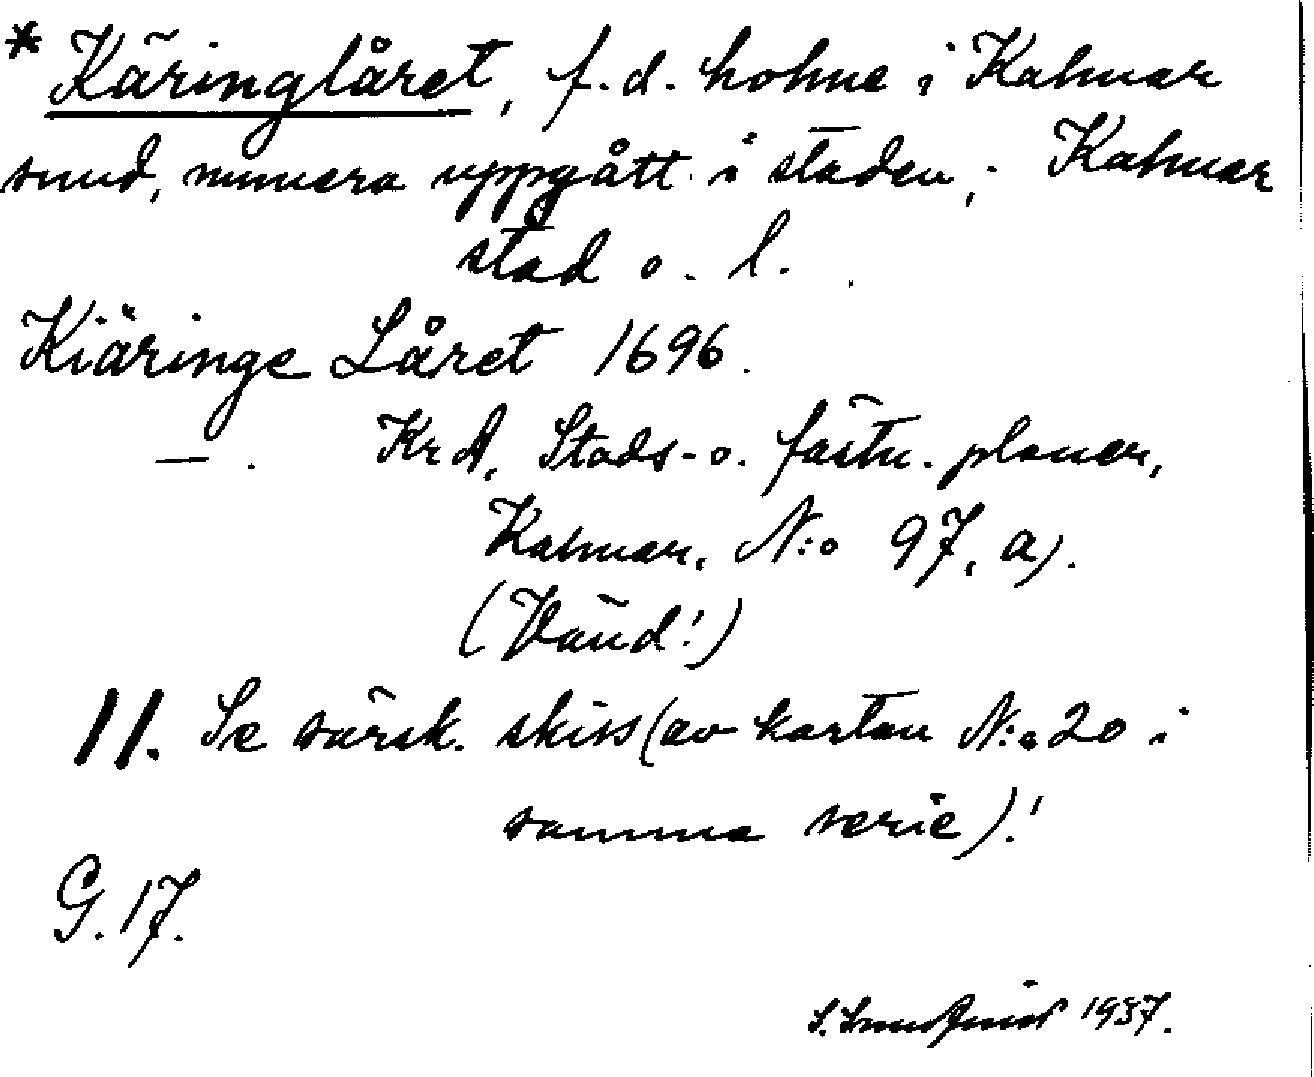 * Käringlåret, f.d. holme i Kalmar
sund, numera uppgått i staden,. Kalmar
stad o. l.
Kiäringe Låret 1696.
— . KrA, Stads- o. fästn. planer,
Kalmar, N:o 97, a).
(Vänd!)
11. Se särsk. skiss (av kartan N:o 20 i
samma serie)!
G. 17.
1937.